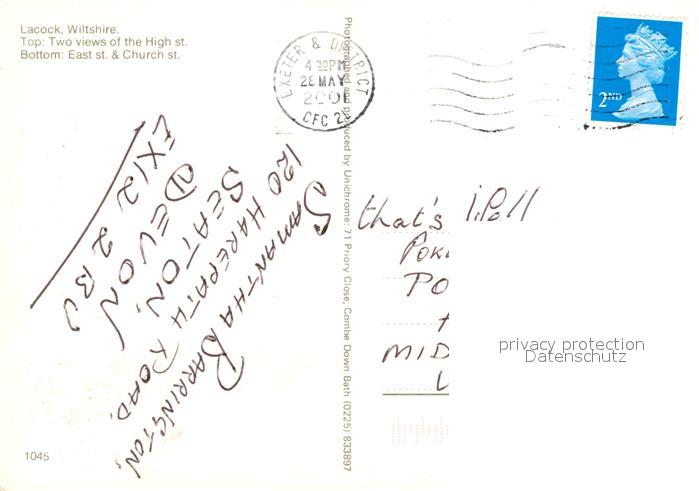 Lacock, Wiltshire.
Top: Two views of the High st.
Bottom: East st. & Church st.
EXETER & DISTRICT
4 30PM
28 MAY
2001
CFC 2
2ND
Photographed and produced by Unichrome: 71 Priory Close, Combe Down Bath (0225) 833897
SAMANTHA BARRINGTON,
120 HAREPATH ROAD,
SEATON,
DEVON
EX12 2BU
that's i.Poll
POK
PO
MID
privacy protection
Datenschutz
1045